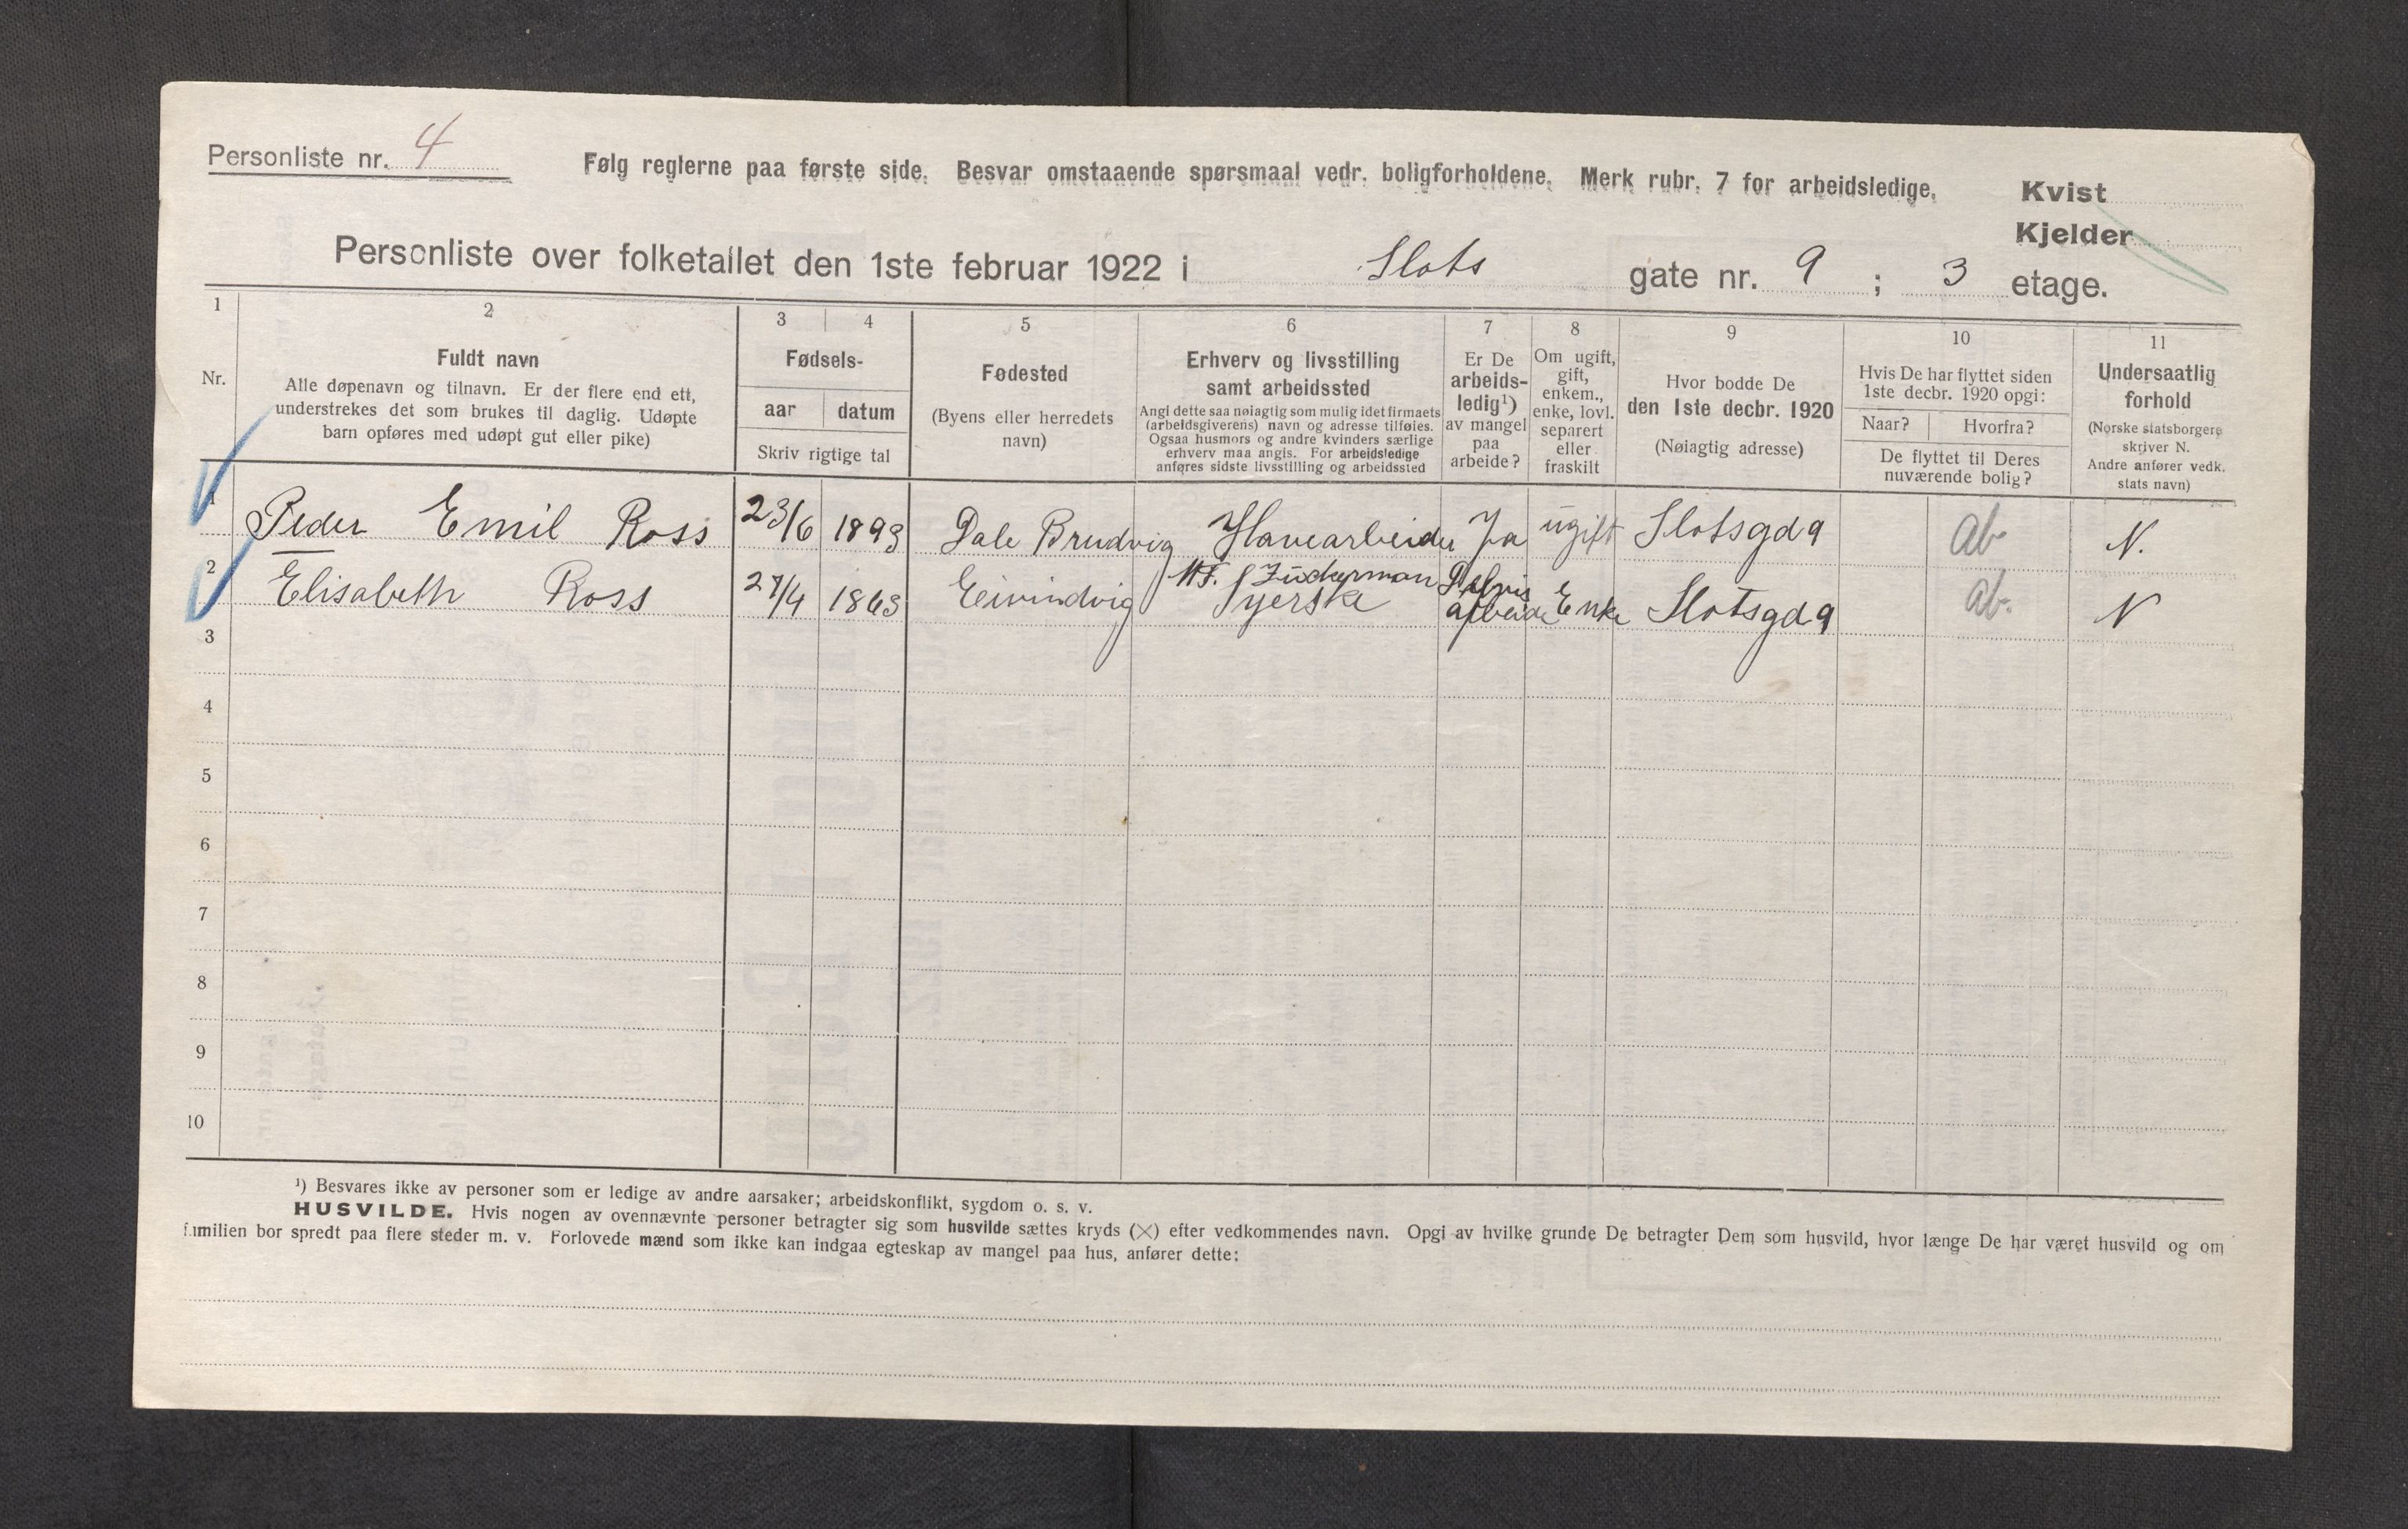 Personliste nr. 4
Følg reglerne paa første side. Besvar omstaaende spørsmaal vedr. boligforholdene. Merk rubr. 7 for arbeidsledige.
Kvist
Kjelder
Personliste over folketallet den 1ste februar 1922 i Slots gate nr. 9 ; 3 etage.
1 2 3 4 5 6 7 8 9 10 11
Nr.
Fuldt navn
Alle døpenavn og tilnavn. Er der flere end ett,
understrekes det som brukes til daglig. Udøpte
barn opføres med udøpt gut eller pike)
Fødsels-
aar datum
Skriv rigtige tal
Fødested
(Byens eller herredets
navn)
Erhverv og livsstilling
samt arbeidssted
Angi dette saa nøiagtig som mulig idet firmaets
(arbeidsgiverens) navn og adresse tilføies.
Ogsaa husmors og andre kvinders særlige
erhverv maa angis. For arbeidsledige
anføres sidste livsstilling og arbeidssted
Er De
arbeids-
ledig¹)
av mangel
paa
arbeide?
Om ugift,
gift,
enkem.,
enke, lovl.
separert
eller
fraskilt
Hvor bodde De
den 1ste decbr. 1920
(Nøiagtig adresse)
Hvis De har flyttet siden
1ste decbr. 1920 opgi:
Naar? Hvorfra?
De flyttet til Deres
nuværende bolig?
Undersaatlig
forhold
(Norske statsborgere
skriver N.
Andre anfører vedk.
stats navn)
1 Peder Emil Ross 23/6 1893 Dale Brudvig Havearbeider Ja ugift Slotsgd 9 ab. N.
2 Elisabeth Ross 27/4 1863 Eivindvig Syerske arbeide Enke Slotsgd 9 ab. N
3
4
5
6
7
8
9
10
¹) Besvares ikke av personer som er ledige av andre aarsaker; arbeidskonflikt, sygdom o. s. v.
HUSVILDE. Hvis nogen av ovennævnte personer betragter sig som husvilde sættes kryds (×) efter vedkommendes navn. Opgi av hvilke grunde De betragter Dem som husvild, hvor længe De har været husvild og om
familien bor spredt paa flere steder m. v. Forlovede mænd som ikke kan indgaa egteskap av mangel paa hus, anfører dette: